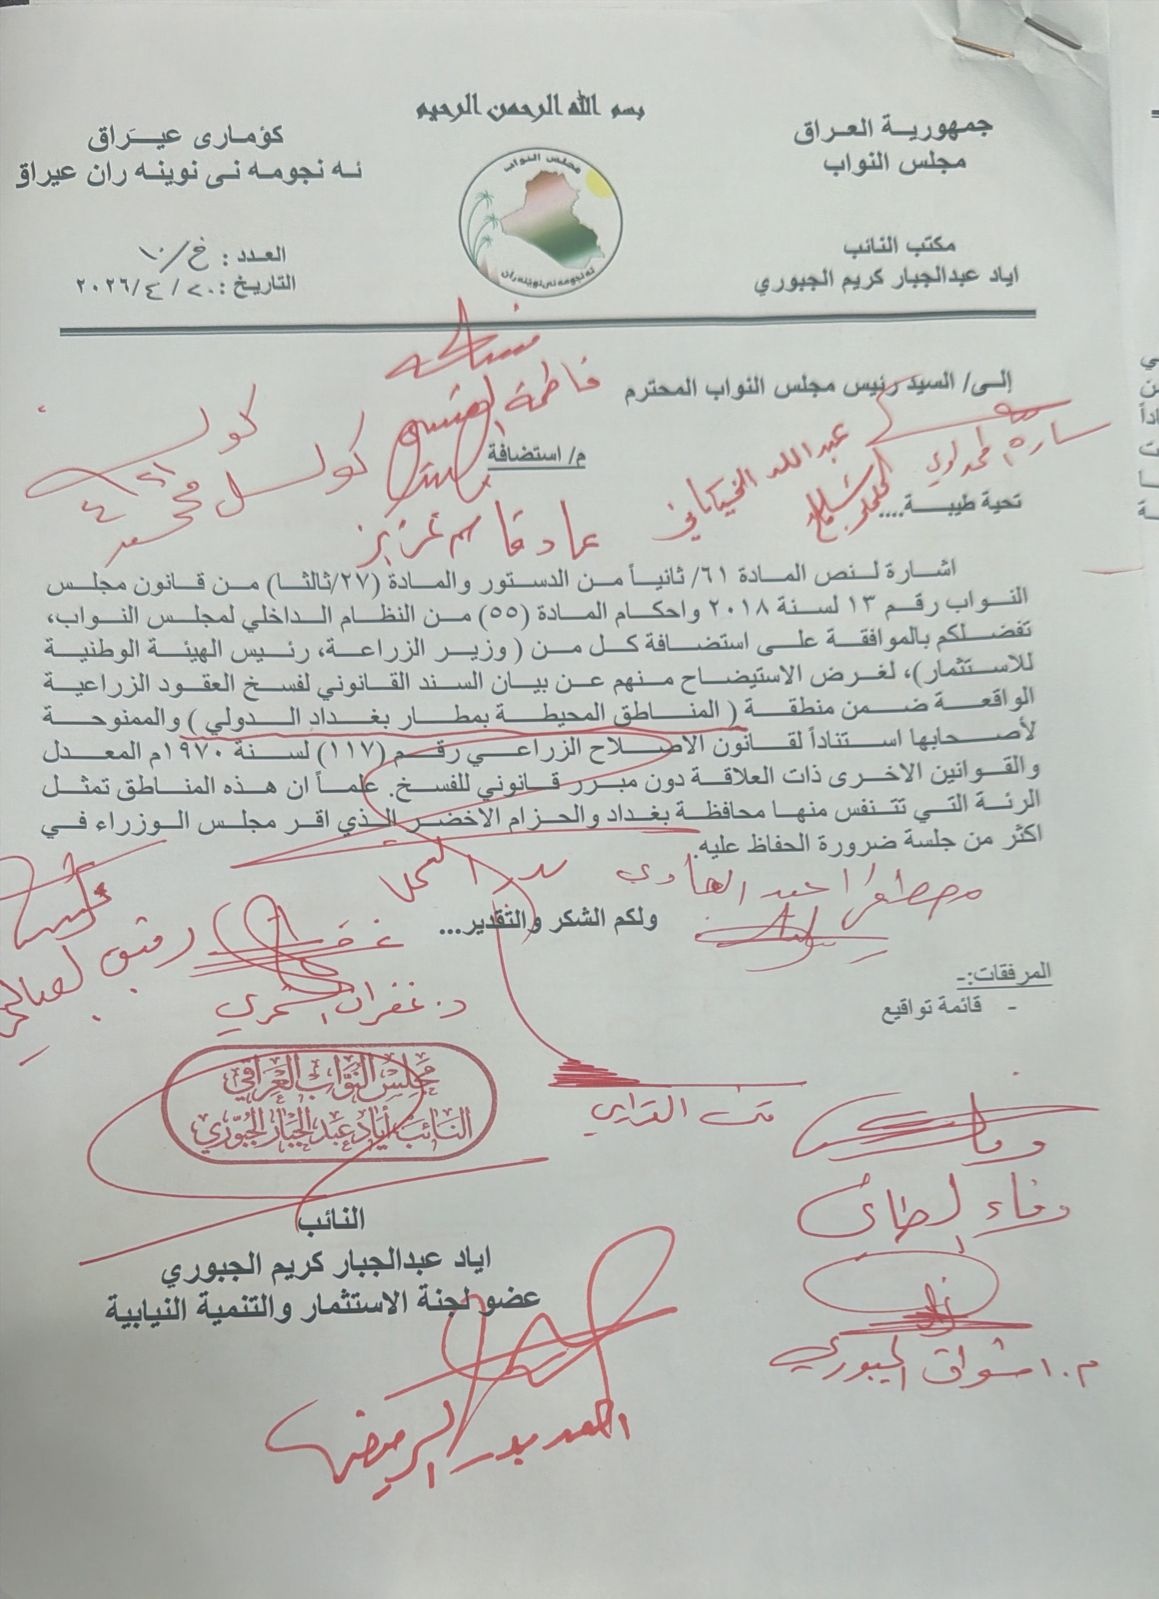 بسم الله الرحمن الرحيم
جمهورية العراق
مجلس النواب
كۆماری عیـَراق
ئه نجومه نی نوینه ران عیراق
مجلس النواب
ئه نجومه نی نوینه ران
مكتب النائب
اياد عبدالجبار كريم الجبوري
العدد : خ/١٠
التاريخ : ٢٠ / ٤ /٢٠٢٦
إلى/ السيد رئيس مجلس النواب المحترم
فاطمة
سارة
عبد الله الخيكاني
م/ استضافة
كولـ
كولسل محمد
تحية طيبة....
عماد قاسم عزيز
اشارة لنص المادة ٦١/ ثانياً من الدستور والمادة (٢٧/ثالثا) من قانون مجلس
النواب رقم ١٣ لسنة ٢٠١٨ واحكام المادة (٥٥) من النظام الداخلي لمجلس النواب،
تفضلكم بالموافقة على استضافة كل من ( وزير الزراعة، رئيس الهيئة الوطنية
للاستثمار)، لغرض الاستيضاح منهم عن بيان السند القانوني لفسخ العقود الزراعية
الواقعة ضمن منطقة ( المناطق المحيطة بمطار بغداد الدولي ) والممنوحة
لأصحابها استناداً لقانون الاصلاح الزراعي رقم (١١٧) لسنة ١٩٧٠م المعدل
والقوانين الاخرى ذات العلاقة دون مبرر قانوني للفسخ. علماً ان هذه المناطق تمثل
الرئة التي تتنفس منها محافظة بغداد والحزام الاخضر الذي اقر مجلس الوزراء في
اكثر من جلسة ضرورة الحفاظ عليه.
مصطفى احمد الهادي
ولكم الشكر والتقدير...
رفيق الصالحي
د. غفران الشمري
المرفقات:-
- قائمة تواقيع
مجلس النواب العراقي
النائب أياد عبد الجبار الجبوري
وفاء
النائب
اياد عبدالجبار كريم الجبوري
عضو لجنة الاستثمار والتنمية النيابية
م. اشواق الجبوري
احمد بدر